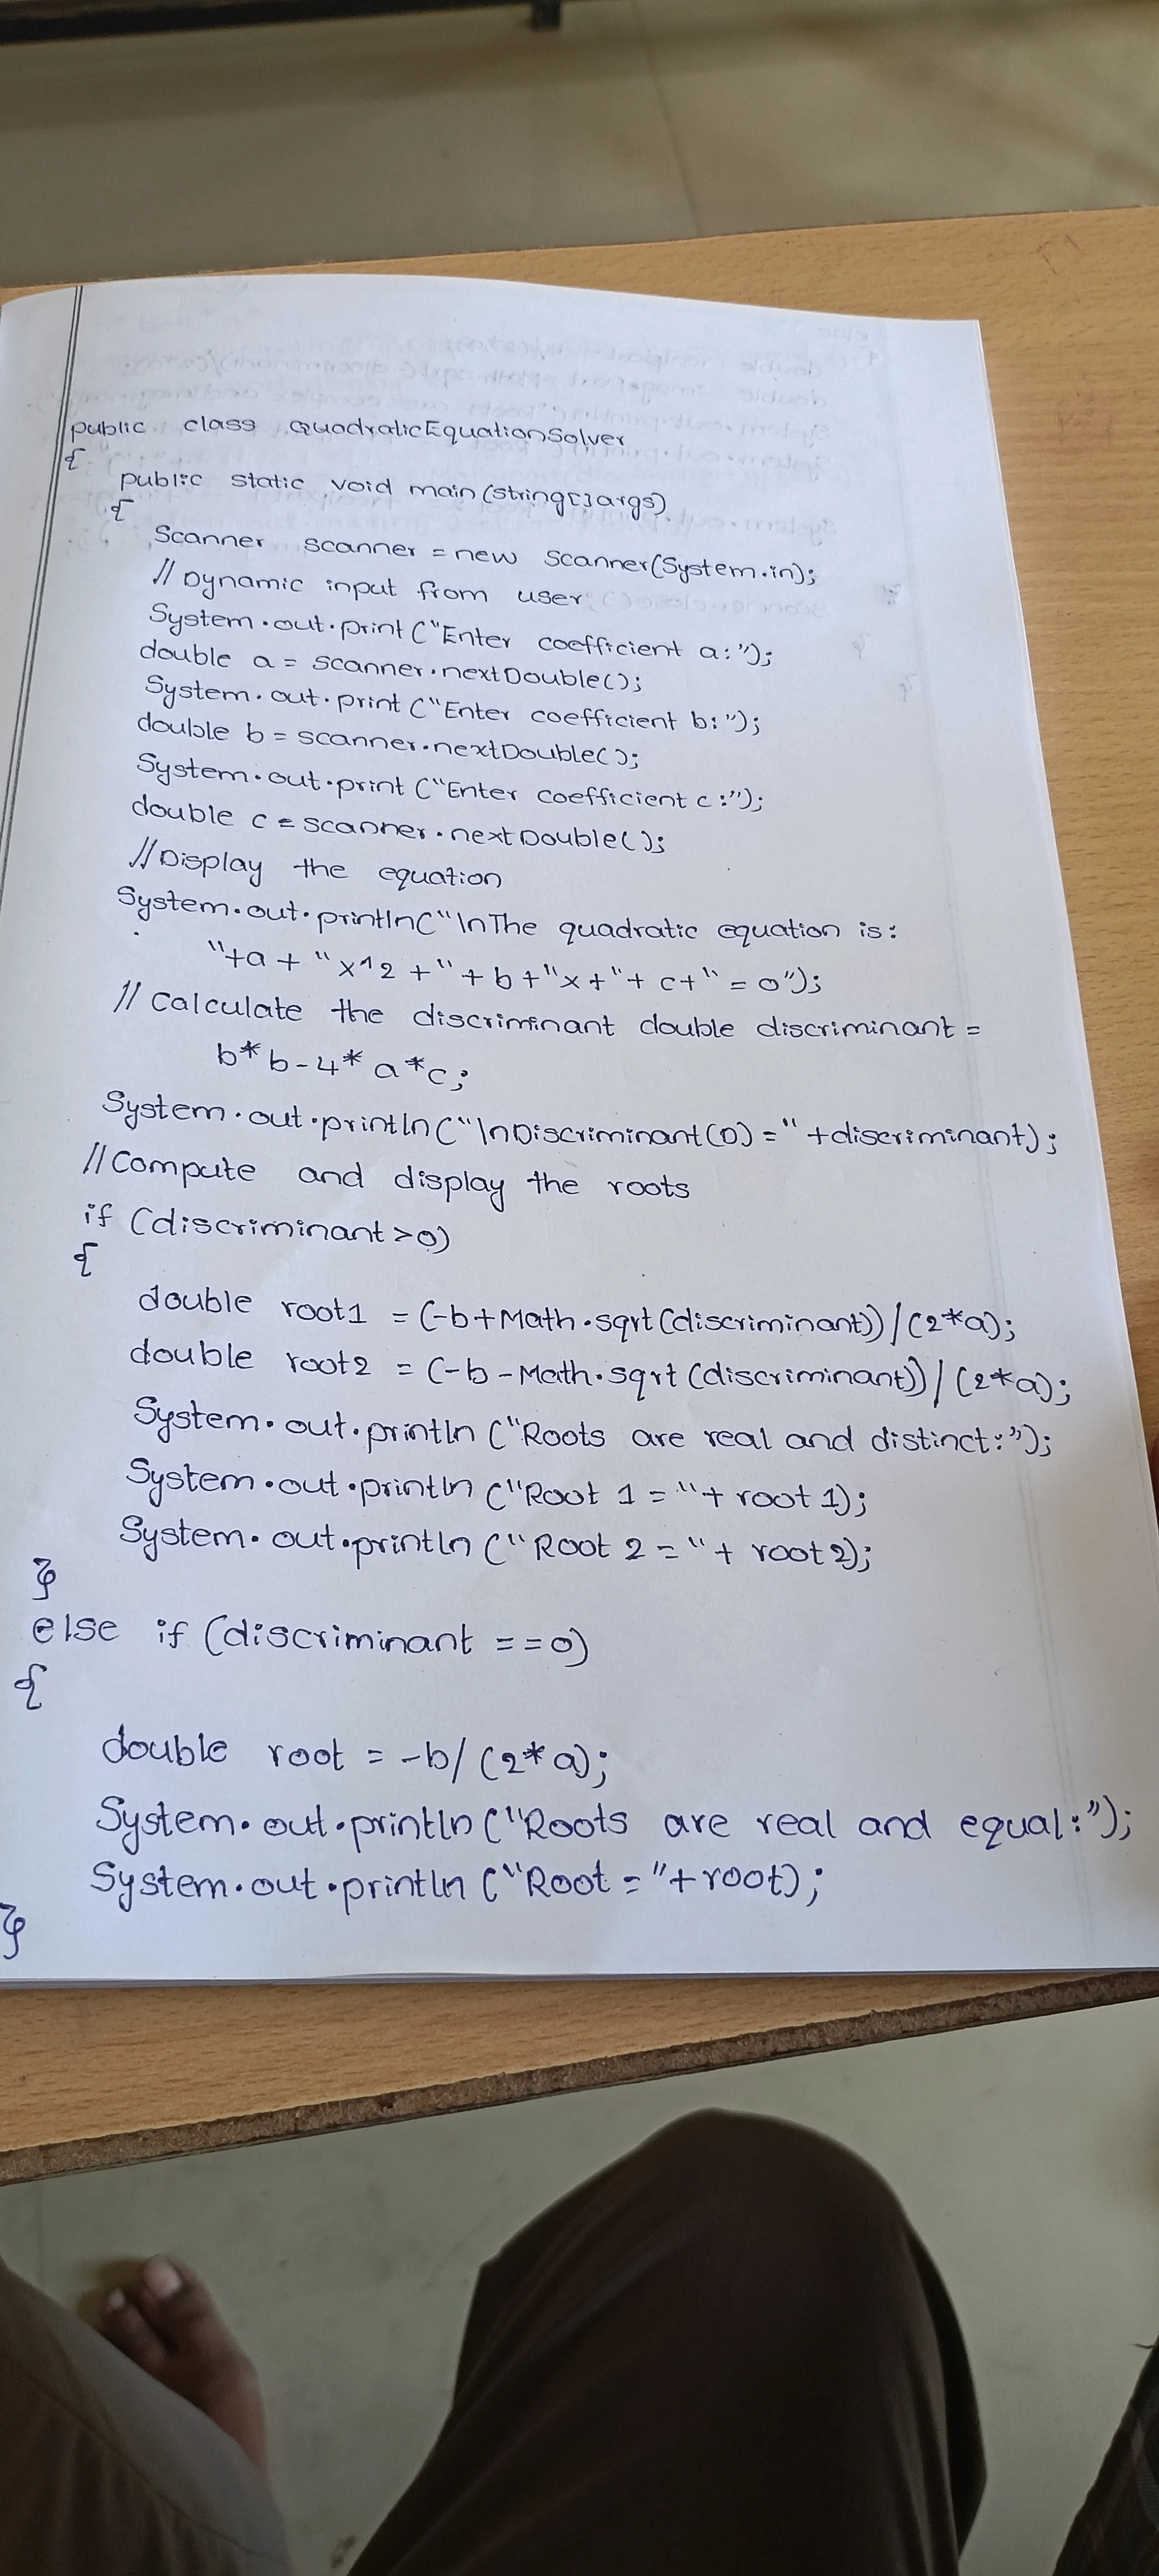 public class QuadraticEquationSolver
{
public static void main(string[]args)
{
Scanner scanner = new scanner(System.in);
// Dynamic input from user
System.out.print("Enter coefficient a:");
double a = scanner.nextDouble();
System.out.print("Enter coefficient b:");
double b = scanner.nextDouble();
System.out.print("Enter coefficient c:");
double c = scanner.nextDouble();
//Display the equation
System.out.println("\nThe quadratic equation is:
"+a + "x^2 +" + b + "x + "+ c+" = 0");
// calculate the discriminant double discriminant =
b*b-4*a*c;
System.out.println("\nDiscriminant(D) = " +discriminant);
//Compute and display the roots
if (discriminant>0)
{
double root1 = (-b+Math.sqrt(discriminant))/(2*a);
double root2 = (-b-Math.sqrt(discriminant))/(2*a);
System.out.println("Roots are real and distinct:");
System.out.println("Root 1 = "+ root1);
System.out.println("Root 2 = "+ root2);
}
else if (discriminant ==0)
{
double root = -b/(2*a);
System.out.println("Roots are real and equal:");
System.out.println("Root = "+root);
}